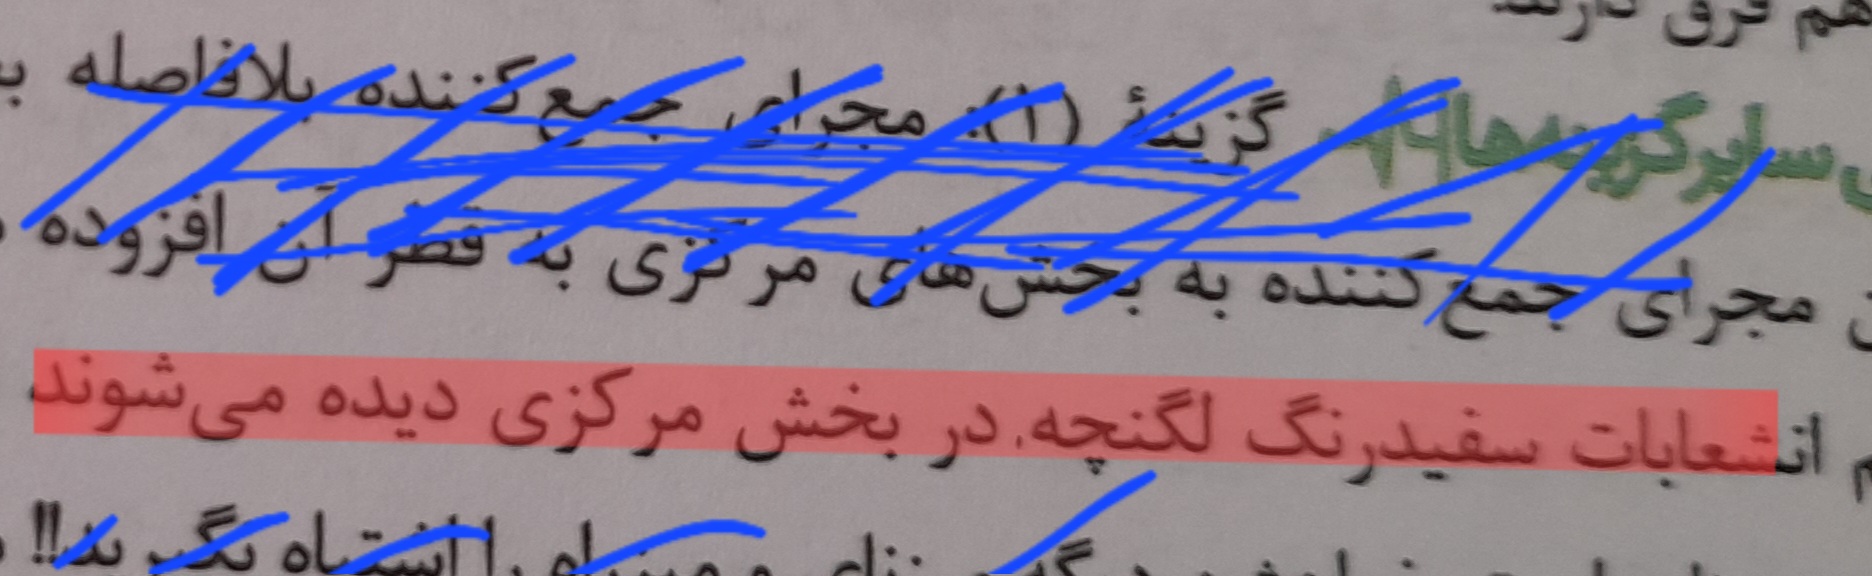 هم فرق دارند.
سایر گزینه‌ها
گزینهٔ (۱): مجرای جمع‌کننده بلافاصله
مجرای جمع‌کننده به بخش‌های مرکزی به قطر آن افزوده
انشعابات سفیدرنگ لگنچه، در بخش مرکزی دیده می‌شوند
را اشتباه نگیرید!!